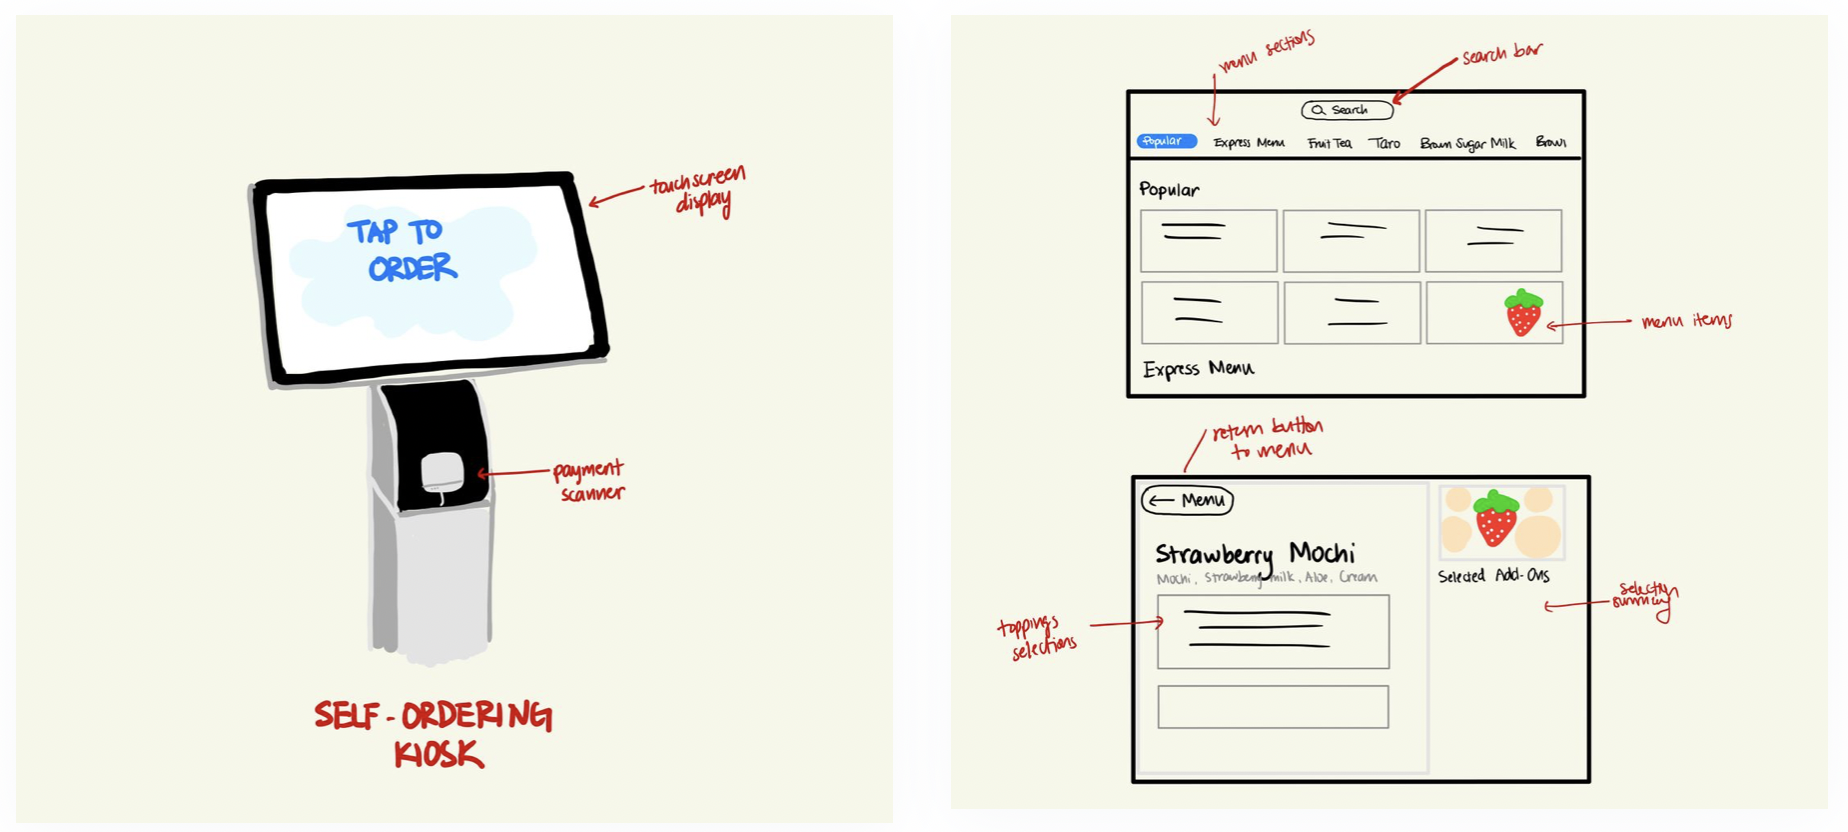 TAP TO
ORDER
touchscreen
display
payment
scanner
SELF-ORDERING
KIOSK
menu sections
search bar
Search
Popular
Express Menu
Fruit Tea
Taro
Brown Sugar Milk
Brown
Popular
menu items
Express Menu
return button
to menu
← Menu
Strawberry Mochi
Mochi, Strawberry milk, Aloe, Cream
toppings
selections
Selected Add-Ons
selection
summary